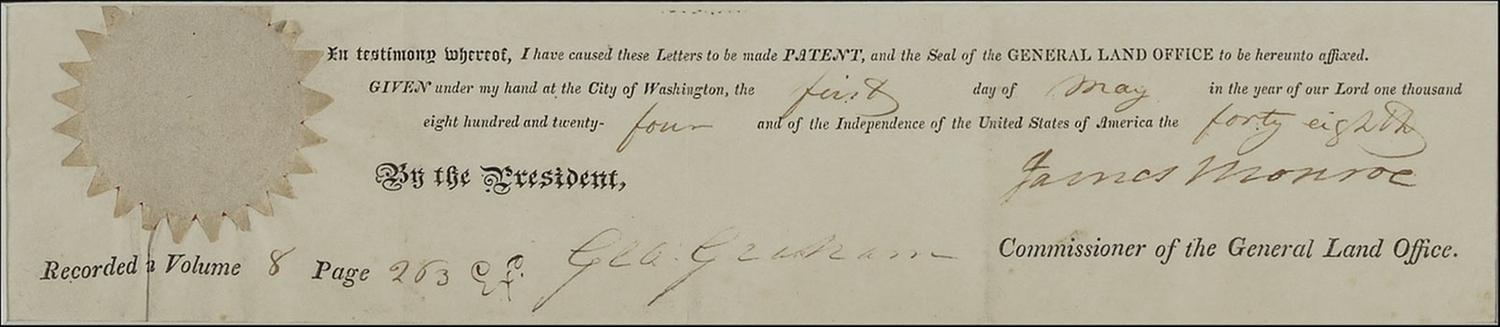 In testimony whereof, I have caused these Letters to be made PATENT, and the Seal of the GENERAL LAND OFFICE to be hereunto affixed.
GIVEN under my hand at the City of Washington, the first day of May in the year of our Lord one thousand
eight hundred and twenty- four and of the Independence of the United States of America the forty eighth
By the President, James Monroe
Geo. Graham Commissioner of the General Land Office.
Recorded in Volume 8 Page 263